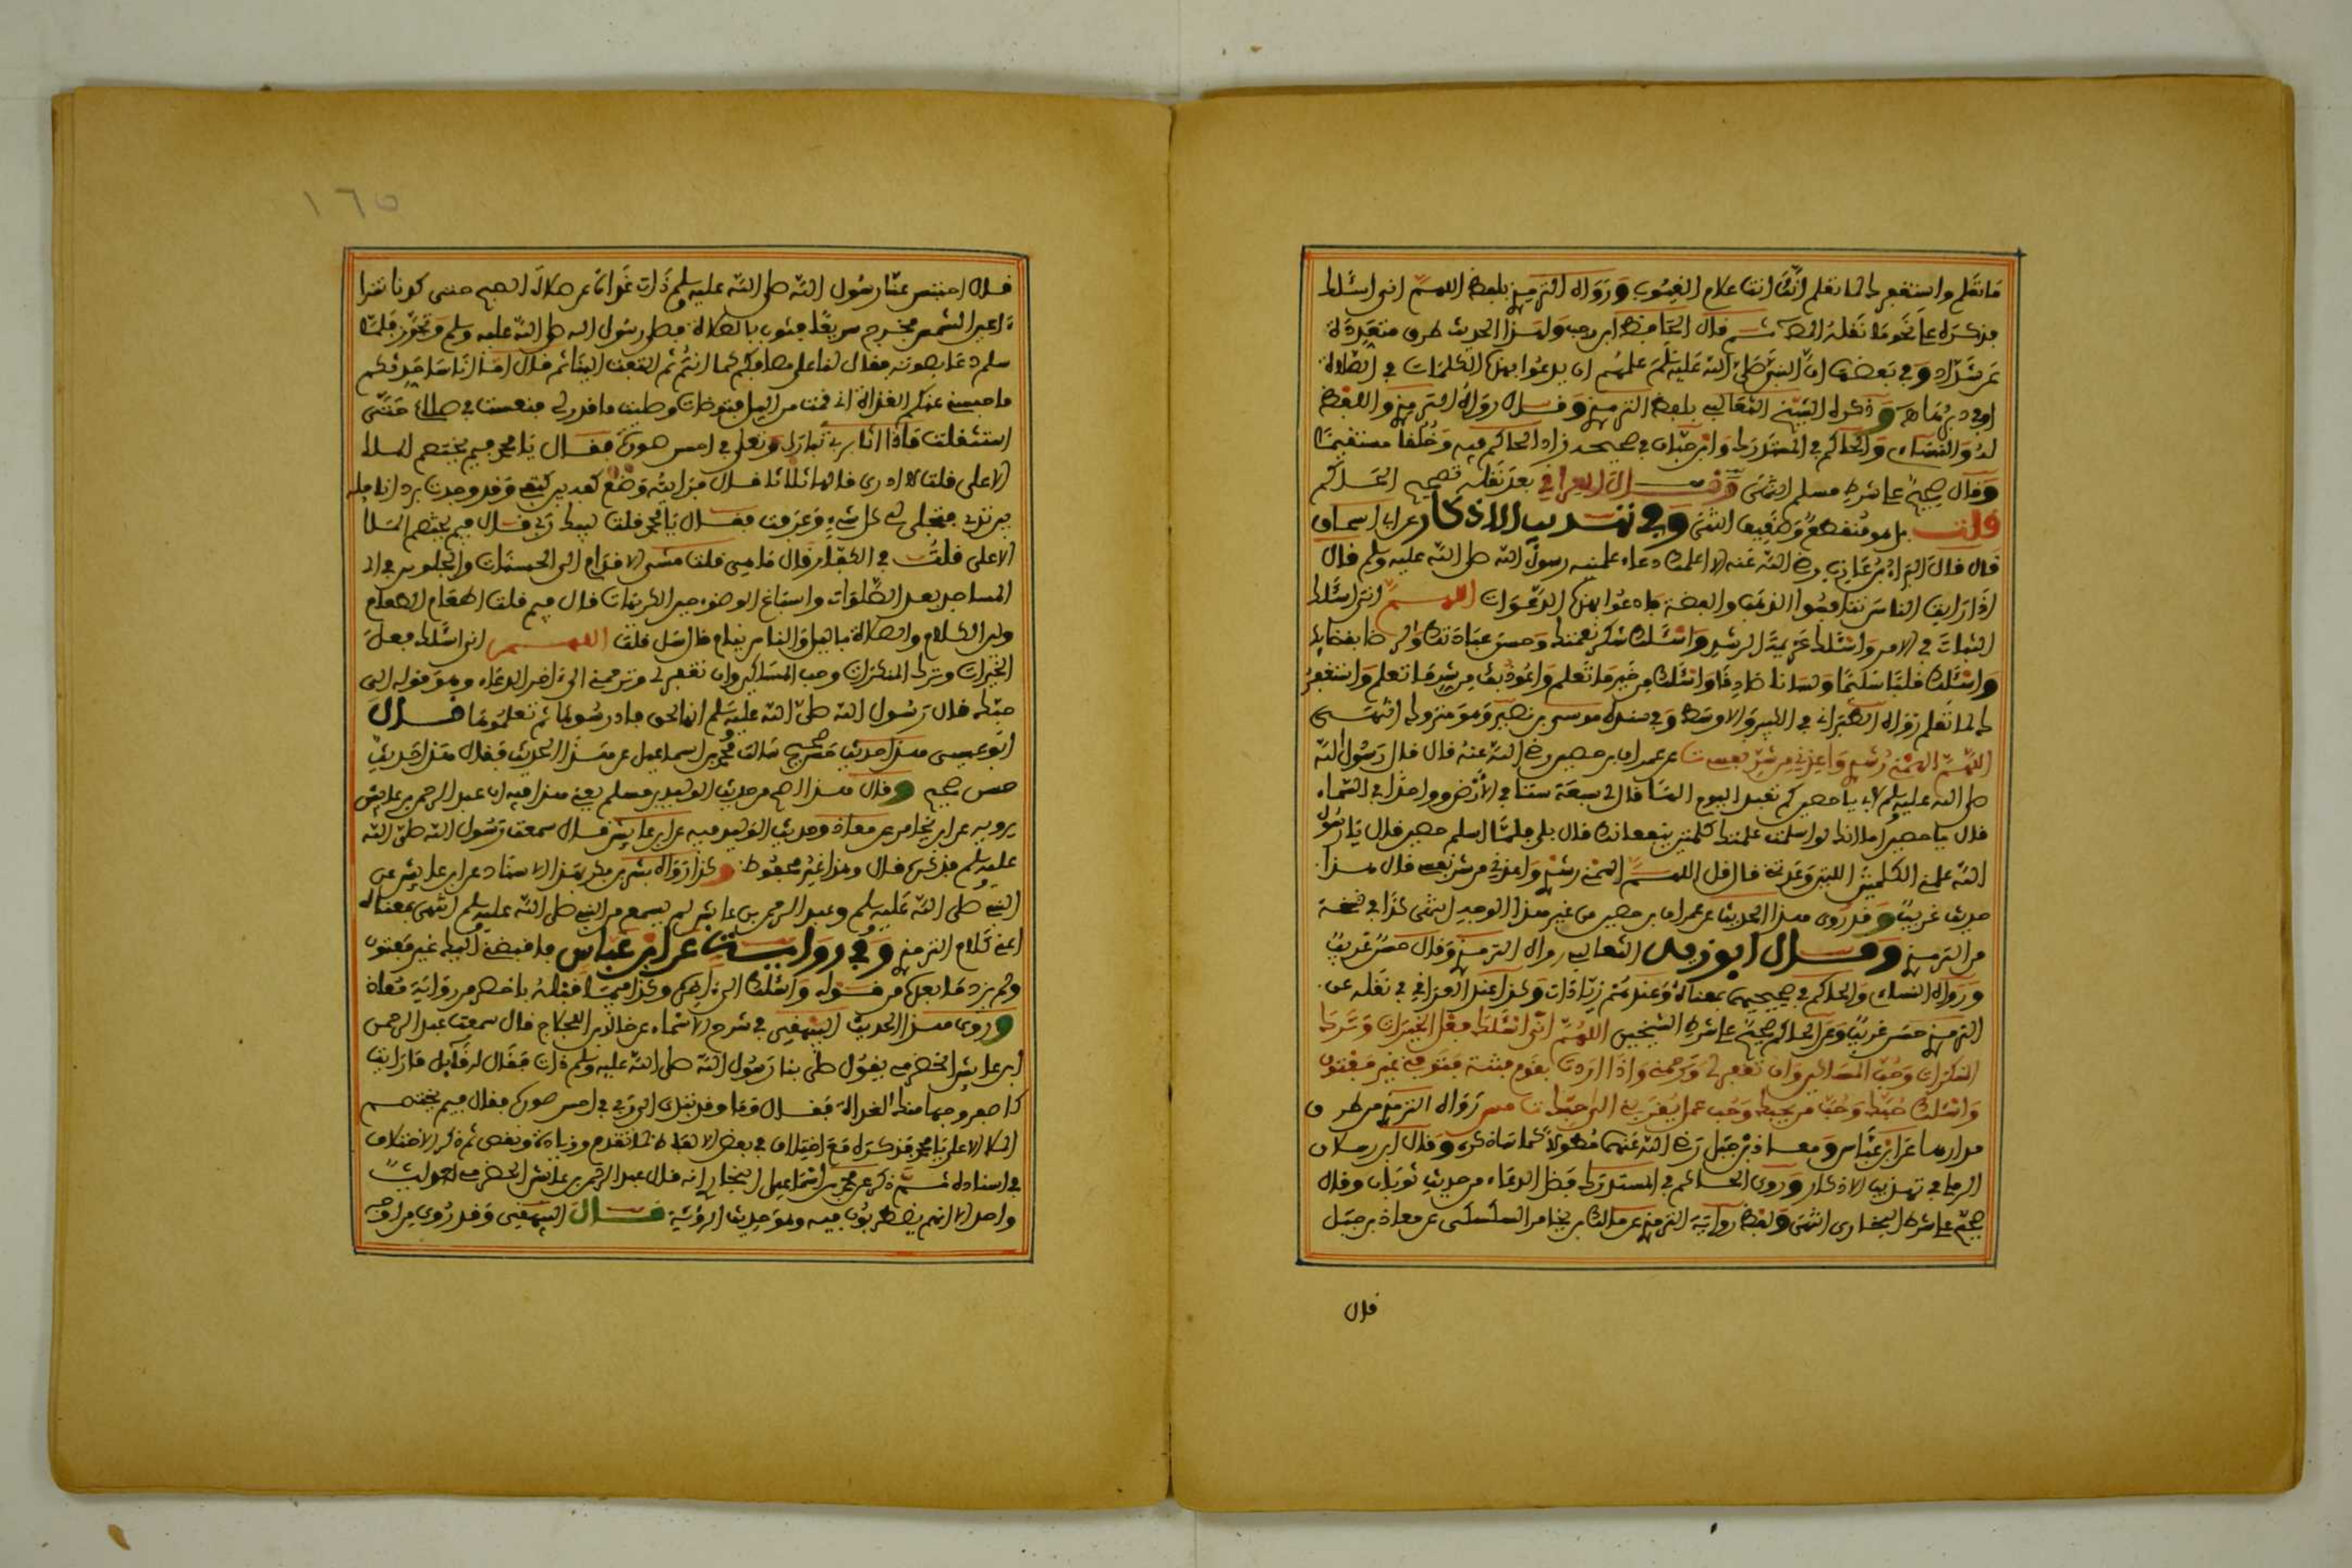 ما تعلم واستغفرك لما تعلم انك انت علام الغيوب ورواه الترمذي بلفظ اللهم اني اسئلك
فذكره على نحو ما نقله ثم قال الحافظ ابن رجب ولهذا الحديث طرق متعددة
عن شداد وفي بعضها ان النبي صلى الله عليه وسلم علمهم ان يدعوا بهذه الكلمات في الصلاة
او في دبرها هـ وذكره الشيخ الثعالبي بلفظ الترمذي وقال رواه الترمذي واللفظ
له والنسائي والحاكم في المستدرك وابن حبان في صحيحه زاد الحاكم فيه وخلقا مستقيما
وقال صحيح على شرط مسلم انتهى وقال العراقي بعد نقله تصحيح الحاكم
قلت بل هو منقطع وضعيف انتهى وفي تهذيب الاذكار عن ابي اسحاق
قال قال البراء بن عازب رضي الله عنه الا اعلمك دعاء علمنيه رسول الله صلى الله عليه وسلم قال
اذا رايت الناس تنافسوا الذهب والفضة فادعوا بهذه الدعوات اللهم اني اسئلك
الثبات في الامر واسئلك عزيمة الرشد واسئلك شكر نعمتك وحسن عبادتك والرضا بقضائك
واسئلك قلبا سليما ولسانا صادقا واسئلك من خير ما تعلم واعوذ بك من شر ما تعلم واستغفر
ك لما تعلم رواه الطبراني في الكبير والاوسط وفي سنده موسى بن نصير وهو متروك انتهى
اللهم الهمني رشدي واعذني من شر نفسي ت عن عمران بن حصين رضي الله عنه قال قال رسول الله
صلى الله عليه وسلم لابي يا حصين كم تعبد اليوم الها قال سبعة ستا في الارض وواحدا في السماء
قال يا حصين اما انك لو اسلمت علمتك كلمتين ينفعانك قال فلما اسلم حصين قال يا رسول
الله علمني الكلمتين اللتين وعدتني قال قل اللهم الهمني رشدي واعذني من شر نفسي قال هذا
حديث غريب وقد روى هذا الحديث عن عمران بن حصين من غير هذا الوجه انتهى كذا في نسخة
من الترمذي وقال ابو زيد الثعالبي رواه الترمذي وقال حسن غريب
ورواه النسائي والحاكم في صحيحيهما بمعناه وعندهم زيادات وكذا عند العراقي في نقله عن
الترمذي حسن غريب وعن الحاكم صحيح على شرط الشيخين اللهم اني اسئلك فعل الخيرات وترك
المنكرات وحب المساكين وان تغفر لي وترحمني واذا اردت بقوم فتنة فتوفني غير مفتون
واسئلك حبك وحب من يحبك وحب عمل يقرب الى حبك ت مس رواه الترمذي من طرق
مدارها عن ابن عباس ومعاذ بن جبل رضي الله عنهما مطولا كما ساذكره وقال ابن رسلان
الرملي في تهذيب الاذكار وروى الحاكم في المستدرك هذا الدعاء من حديث ثوبان وقال
صحيح على شرط البخاري انتهى ولفظ رواية الترمذي عن مالك بن يخامر السكسكي عن معاذ بن جبل
قال
١٦٥
قال احتبس عنا رسول الله صلى الله عليه وسلم ذات غداة عن صلاة الصبح حتى كدنا نترا
ءا عين الشمس فخرج سريعا فثوب بالصلاة فصلى رسول الله صلى الله عليه وسلم وتجوز فلما
سلم دعا بصوته فقال لنا على مصافكم كما انتم ثم التفت الينا ثم قال اما انا ساحدثكم
ما حبسني عنكم الغداة اني قمت من الليل فتوضات وصليت ما قدر لي فنعست في صلاتي حتى
استثقلت فاذا انا بربي تبارك وتعالى في احسن صورة فقال يا محمد فيم يختصم الملا
الاعلى قلت لا ادري قالها ثلاثا قال فرايته وضع كفه بين كتفي وقد وجدت برد انامله
بين ثديي فتجلى لي كل شيء وعرفت فقال يا محمد قلت لبيك ربي قال فيم يختصم الملا
الاعلى قلت في الكفارات قال ما هي قلت مشي الاقدام الى الحسنات والجلوس في الـ
المساجد بعد الصلوات واسباغ الوضوء حين الكريهات قال فيم قلت اطعام الطعام
ولين الكلام والصلاة بالليل والناس نيام قال سل قلت اللهم اني اسئلك فعل
الخيرات وترك المنكرات وحب المساكين وان تغفر لي وترحمني الى اخر الدعاء وهو قوله الى
حبك قال رسول الله صلى الله عليه وسلم انها لحق فادرسوها ثم تعلموها قال
ابو عيسى هذا حديث حسن صحيح سالت محمد بن اسماعيل عن هذا الحديث فقال هذا حديث
حسن صحيح وقال هذا اصح من حديث الوليد بن مسلم يعني هذا فيه ان عبد الرحمن بن عايش
يرويه عن ابن يخامر عن معاذ وحديث الوليد فيه عن ابن عايش قال سمعت رسول الله صلى الله
عليه وسلم فذكره قال وهذا غير محفوظ وكذا رواه بشر بن بكر بهذا الاسناد عن ابن عايش عن
النبي صلى الله عليه وسلم وعبد الرحمن بن عايش لم يسمع من النبي صلى الله عليه وسلم انتهى بمعناه
اعني كلام الترمذي وفي رواية عن ابن عباس فاقبضني اليك غير مفتون
ولم يزد ما بعده من قوله واسئلك الى اخره وكذا فيما قبله باخصر من رواية معاذ
وروى هذا الحديث البيهقي في شرح الاسماء عن خالد بن اللجلاج قال سمعت عبد الرحمن
ابن عايش الحضرمي يقول صلى بنا رسول الله صلى الله عليه وسلم ذات فقال له قائل ما رايت
ك اصفر وجها منك الغداة فقال وما وقد تبدى الي ربي في احسن صورة فقال فيم يختصم
الملا الاعلى يا محمد فذكره مع اختلاف في بعض الالفاظ كما تقدم وزيادة ونقص ثم ذكر الاختلاف
في اسناده ثم ذكر عن محمد بن اسماعيل البخاري انه قال عبد الرحمن بن عايش الحضرمي له حديث
واحد الا انهم يضطربون فيه وهو حديث الرؤية قال البيهقي وقد روي من اوجه